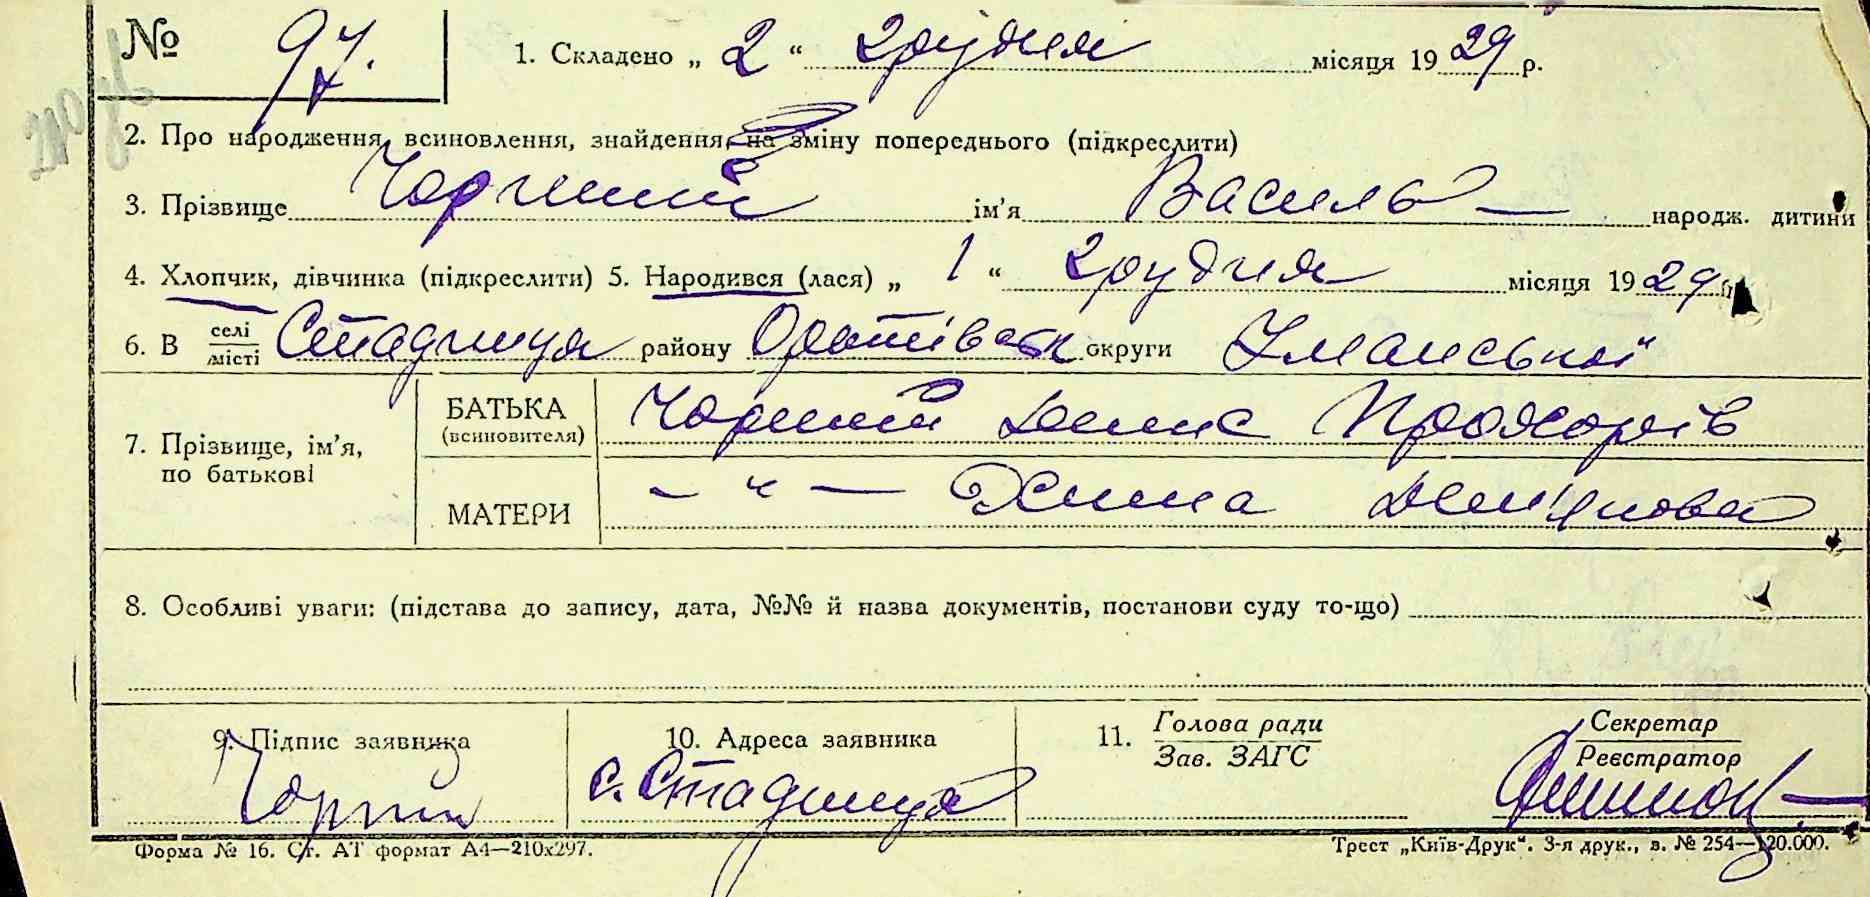 № 97. 1. Складено „ 2 “ грудня місяця 1929 р.
2. Про народження, всиновлення, знайдення, на зміну попереднього (підкреслити)
3. Прізвище Чорний ім’я Василь — народж. дитини
4. Хлопчик, дівчинка (підкреслити) 5. Народився (лася) „ 1 “ грудня місяця 1929 р.
6. В селі/місті Стадниця району Оратівськ округи Уманської
7. Прізвище, ім’я, по батькові
БАТЬКА (всиновителя) Чорний Денис Прохорів
МАТЕРИ — " — Ксенія Дем'янова
8. Особливі уваги: (підстава до запису, дата, №№ й назва документів, постанови суду то-що)
9. Підпис заявника 10. Адреса заявника 11. Голова ради Секретар
Зав. ЗАГС Реєстратор
Чорний с. Стадниця
Форма № 16. Ст. АТ формат А4—210х297. Трест „Київ-Друк“. 3-я друк., в. № 254—120.000.